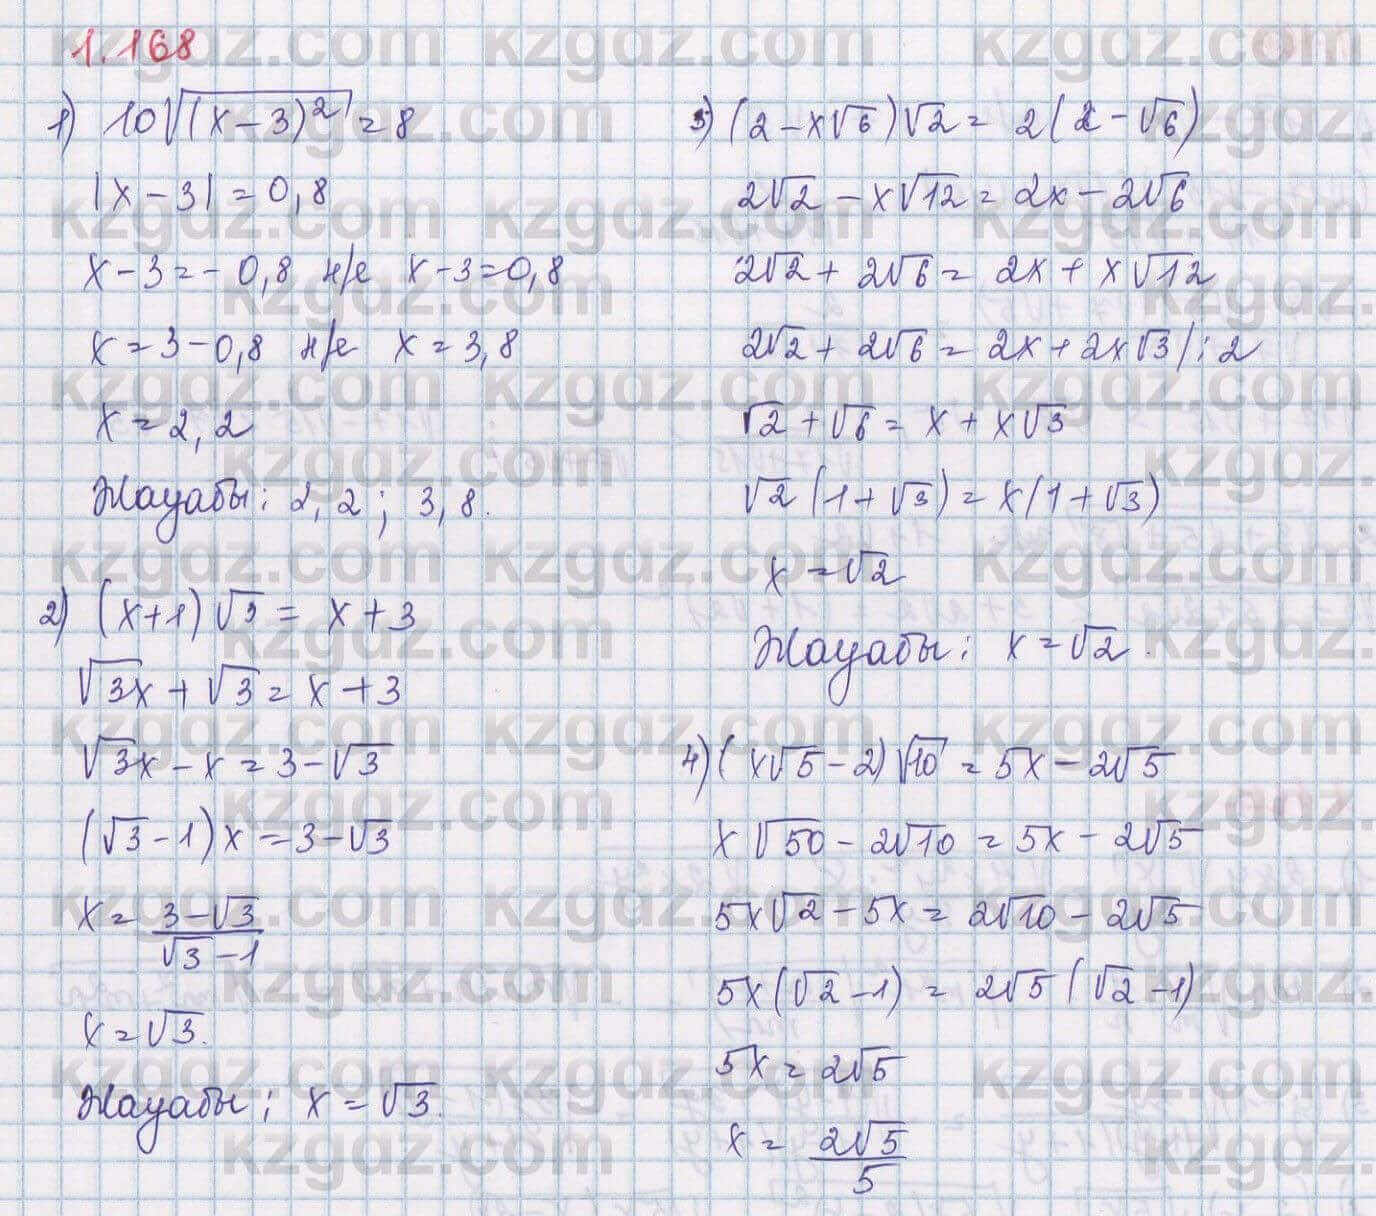 1.168
1) 10√(x-3)² = 8
|x-3| = 0,8
x-3 = -0,8 н/е x-3 = 0,8
x = 3-0,8 н/е x = 3,8
x = 2,2
Жауабы: 2,2; 3,8.
2) (x+1)√3 = x+3
√3x + √3 = x+3
√3x - x = 3-√3
(√3-1)x = 3-√3
x = (3-√3)/(√3-1)
x = √3.
Жауабы: x = √3.
3) (2-x√6)√2 = 2(2-√6)
2√2 - x√12 = 2x - 2√6
2√2 + 2√6 = 2x + x√12
2√2 + 2√6 = 2x + 2x√3 |:2
√2 + √6 = x + x√3
√2(1+√3) = x(1+√3)
x = √2
Жауабы: x = √2.
4) (x√5-2)√10 = 5x - 2√5
x√50 - 2√10 = 5x - 2√5
5x√2 - 5x = 2√10 - 2√5
5x(√2-1) = 2√5(√2-1)
5x = 2√5
x = 2√5/5
kzgdz.com